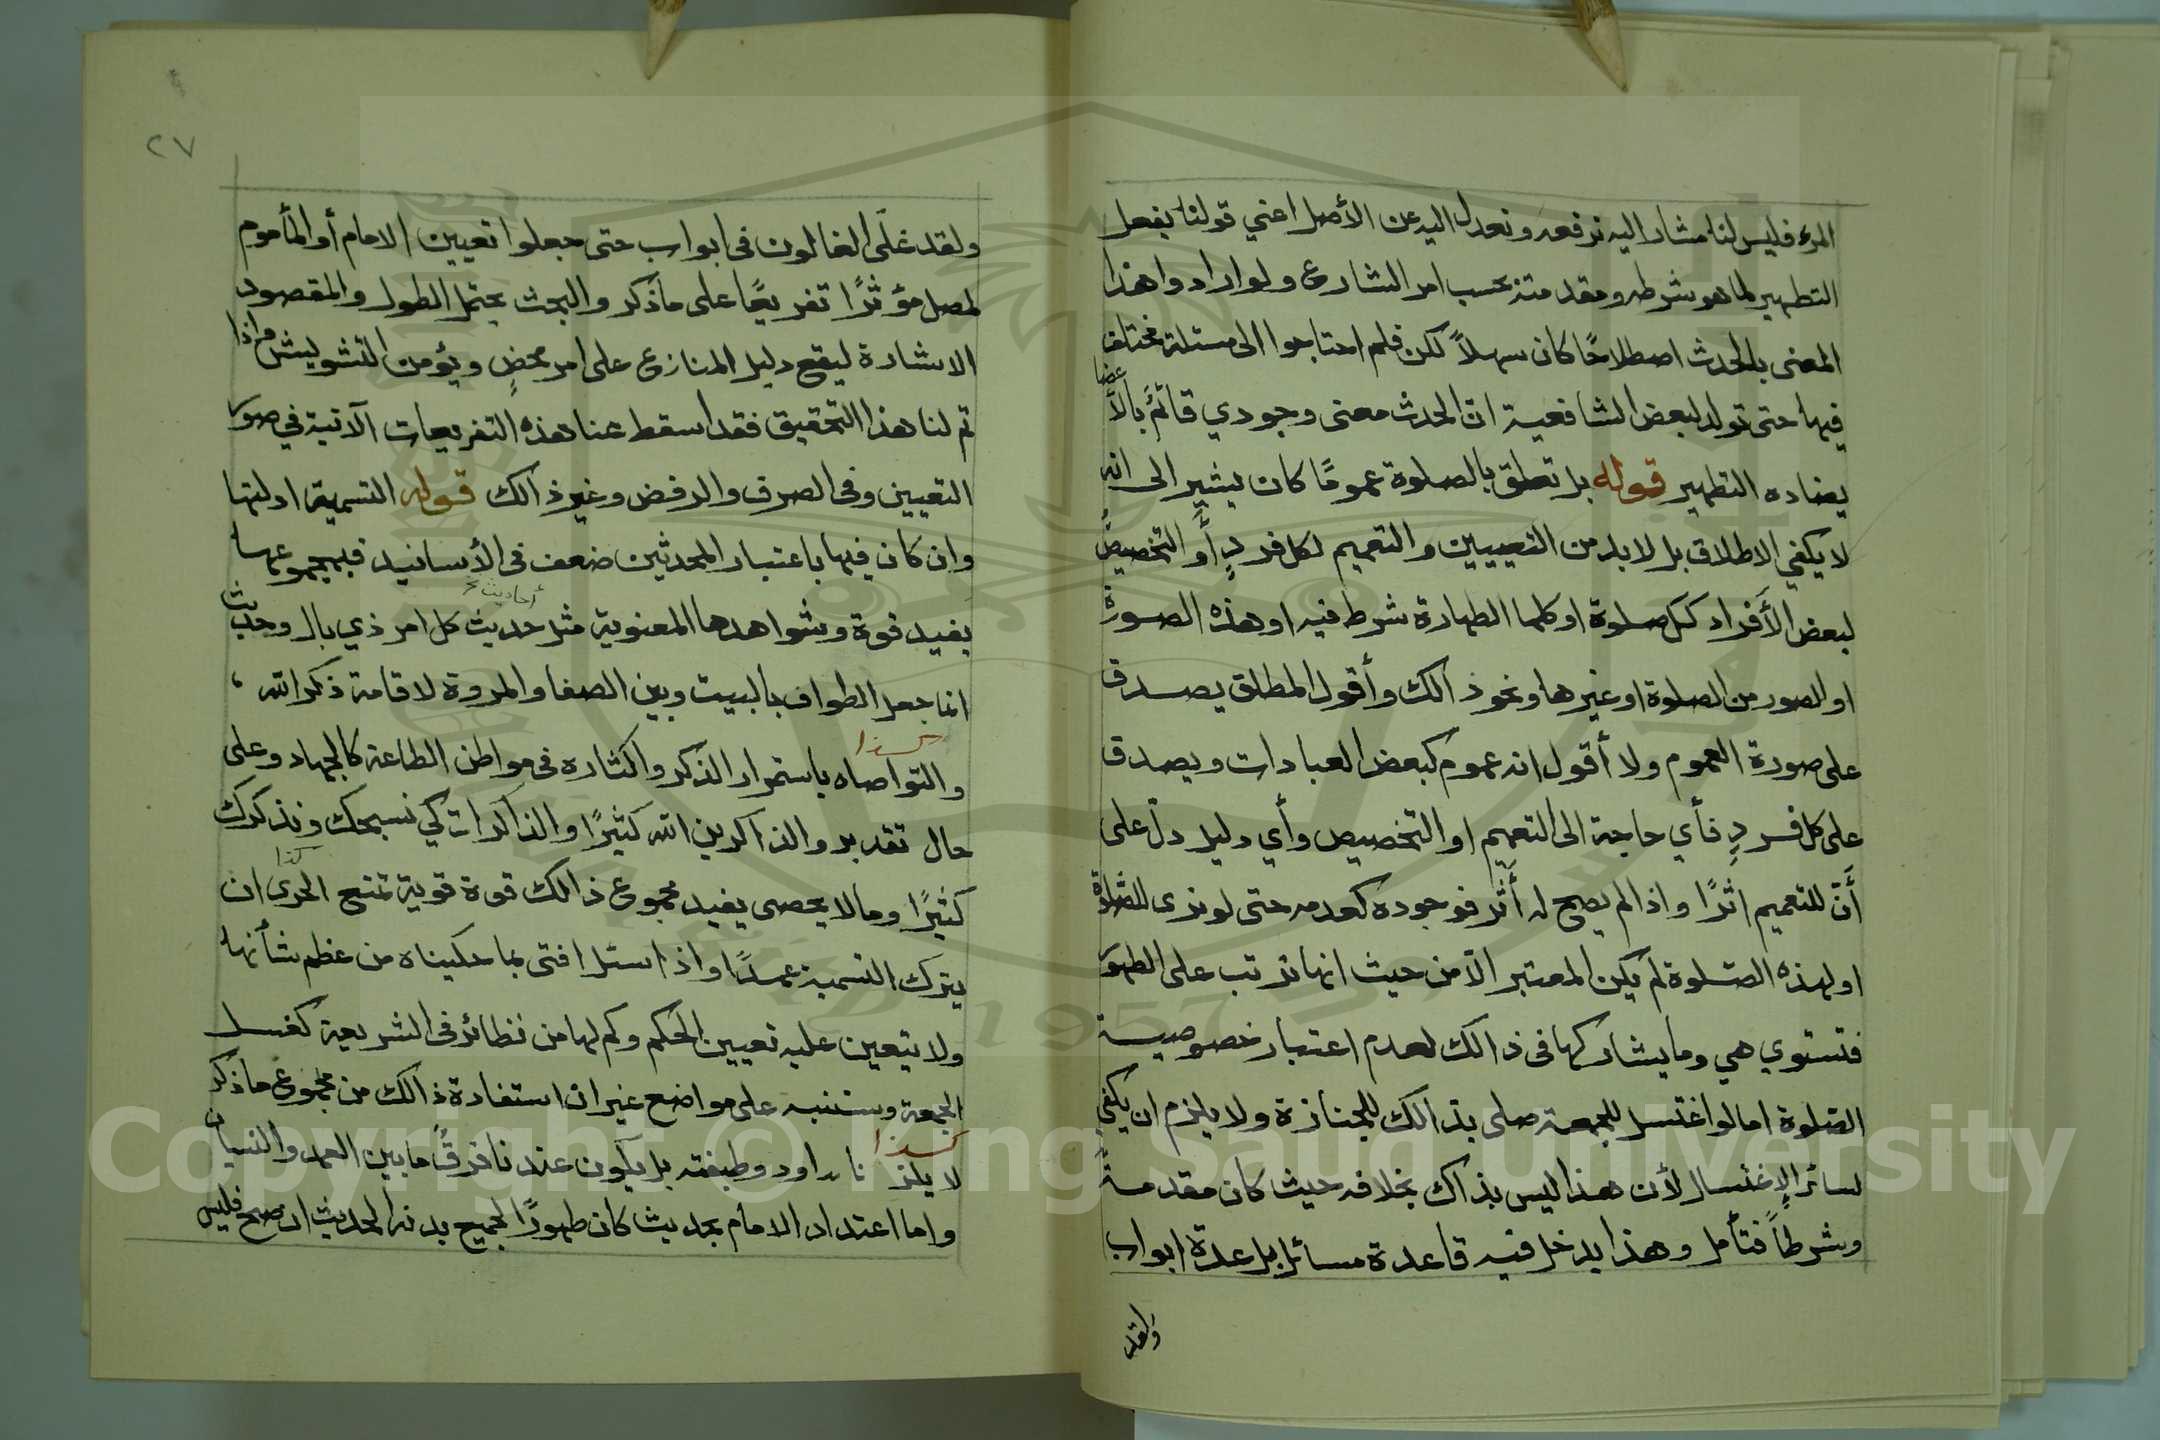 المرء فليس لنا مشار اليه نرفعه ونعدل اليه عن الأصل اعني قولنا يفعل
التطهير لما هو شرطه ومقدمته بحسب امر الشارع ولو ارادوا هذا
المعنى بالحدث اصطلاحًا كان سهلاً لكن فلم احتاجوا الى مسئلة مختلف
فيها حتى تولد لبعض الشافعية ان الحدث معنى وجودي قائم بالأعضا
يضاده التطهير قوله بل تعلق بالصلوة عمومًا كان يشير الى انه
لا يكفي الاطلاق بل لا بد من التعيين والتعميم لكل فردٍ أو التخصيص
لبعض الأفراد ككل صلوة او كلما الطهارة شرط فيه او هذه الصورة
او الصور من الصلوة او غيرها ونحو ذالك وأقول المطلق يصدق
على صورة العموم ولا أقول انه عموم كبعض العبادات ويصدق
على كل فردٍ فأي حاجة الى التعميم او التخصيص وأي دليل دلّ على
أنّ للتعميم اثرًا واذا لم يصح له أثر فوجوده كعدمه حتى لو نوى للصلوة
او لهذه الصّلوة لم يكن المعتبر الّا من حيث انها ترتب على الطهور
فتستوي هي وما يشاركها في ذالك لعدم اعتبار خصوصية
الصّلوة اما لو اغتسل للجمعة صلى بذالك للجنازة ولا يلزم ان يكفي
لسائر الإغتسال لأن هذا ليس بذاك بخلافه حيث كان مقدمةً
وشرطاً فتأمل وهذا يدخل فيه قاعدة مسائل بل عدة ابواب
ولقد
٢٧
ولقد غلّى الغالون في ابواب حتى جعلوا تعيين الامام أو المأموم
لمصل مؤثرًا تفريعًا على ما ذكر والبحث يحتمل الطول والمقصود
الاشارة ليقع دليل المنازع على امر محضٍ ويؤمن التشويش واذا
تم لنا هذا التحقيق فقد اسقط عنا هذه التفريعات الآتية في صور
التعيين وفي الصرف والرفض وغير ذالك قوله التسمية ادلتها
وان كان فيها باعتبار المحدثين ضعف في الأسانيد فبمجموعها
أحاديث نخ
يفيد قوة وشواهدها المعنوية مثل حديث كل امر ذي بال وحديث
انما جعل الطواف بالبيت وبين الصفا والمروة لاقامة ذكر الله ،
كذا
والتواصاه باستمرار الذكر واكثاره في مواطن الطاعة كالجهاد وعلى
حال تقدير والذاكرين الله كثيرًا والذاكرات كي نسبحك ونذكرك
كذا
كثيرًا وما لا يحصى يفيد مجموع ذالك قوة قوية تمنع الحرى ان
يترك التسمية عمدًا واذا سئل افتى بما حكيناه من عظم شأنها
ولا يتعين عليه تعيين الحكم وكم لها من نظائر في الشريعة كغسل
الجمعة وسننبه على مواضع غير ان استفادة ذالك من مجموع ما ذكر
كذا
لا يلز داود وطبقته بل يكون عندنا فرقًا ما بين العمد والنسيان
واما اعتداد الامام بحديث كان طهورًا لجميع بدنه الحديث ان صح فليس